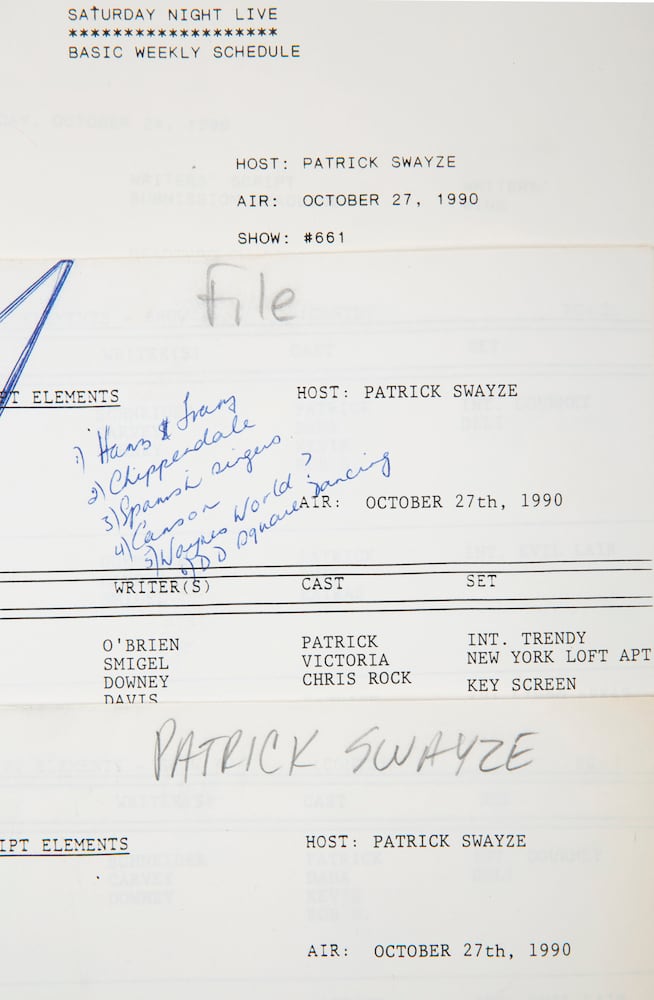 SATURDAY NIGHT LIVE
*******************
BASIC WEEKLY SCHEDULE
HOST: PATRICK SWAYZE
AIR: OCTOBER 27, 1990
SHOW: #661
File
PT ELEMENTS
HOST: PATRICK SWAYZE
1) Hans & Franz
2) Chippendale
3) Spanish singers
4) Carson
5) Waynes World?
6) DD Square Dancing
AIR: OCTOBER 27th, 1990
WRITER(S) CAST SET
O'BRIEN PATRICK INT. TRENDY
SMIGEL VICTORIA NEW YORK LOFT APT
DOWNEY CHRIS ROCK KEY SCREEN
DAVIS
PATRICK SWAYZE
IPT ELEMENTS
HOST: PATRICK SWAYZE
AIR: OCTOBER 27th, 1990